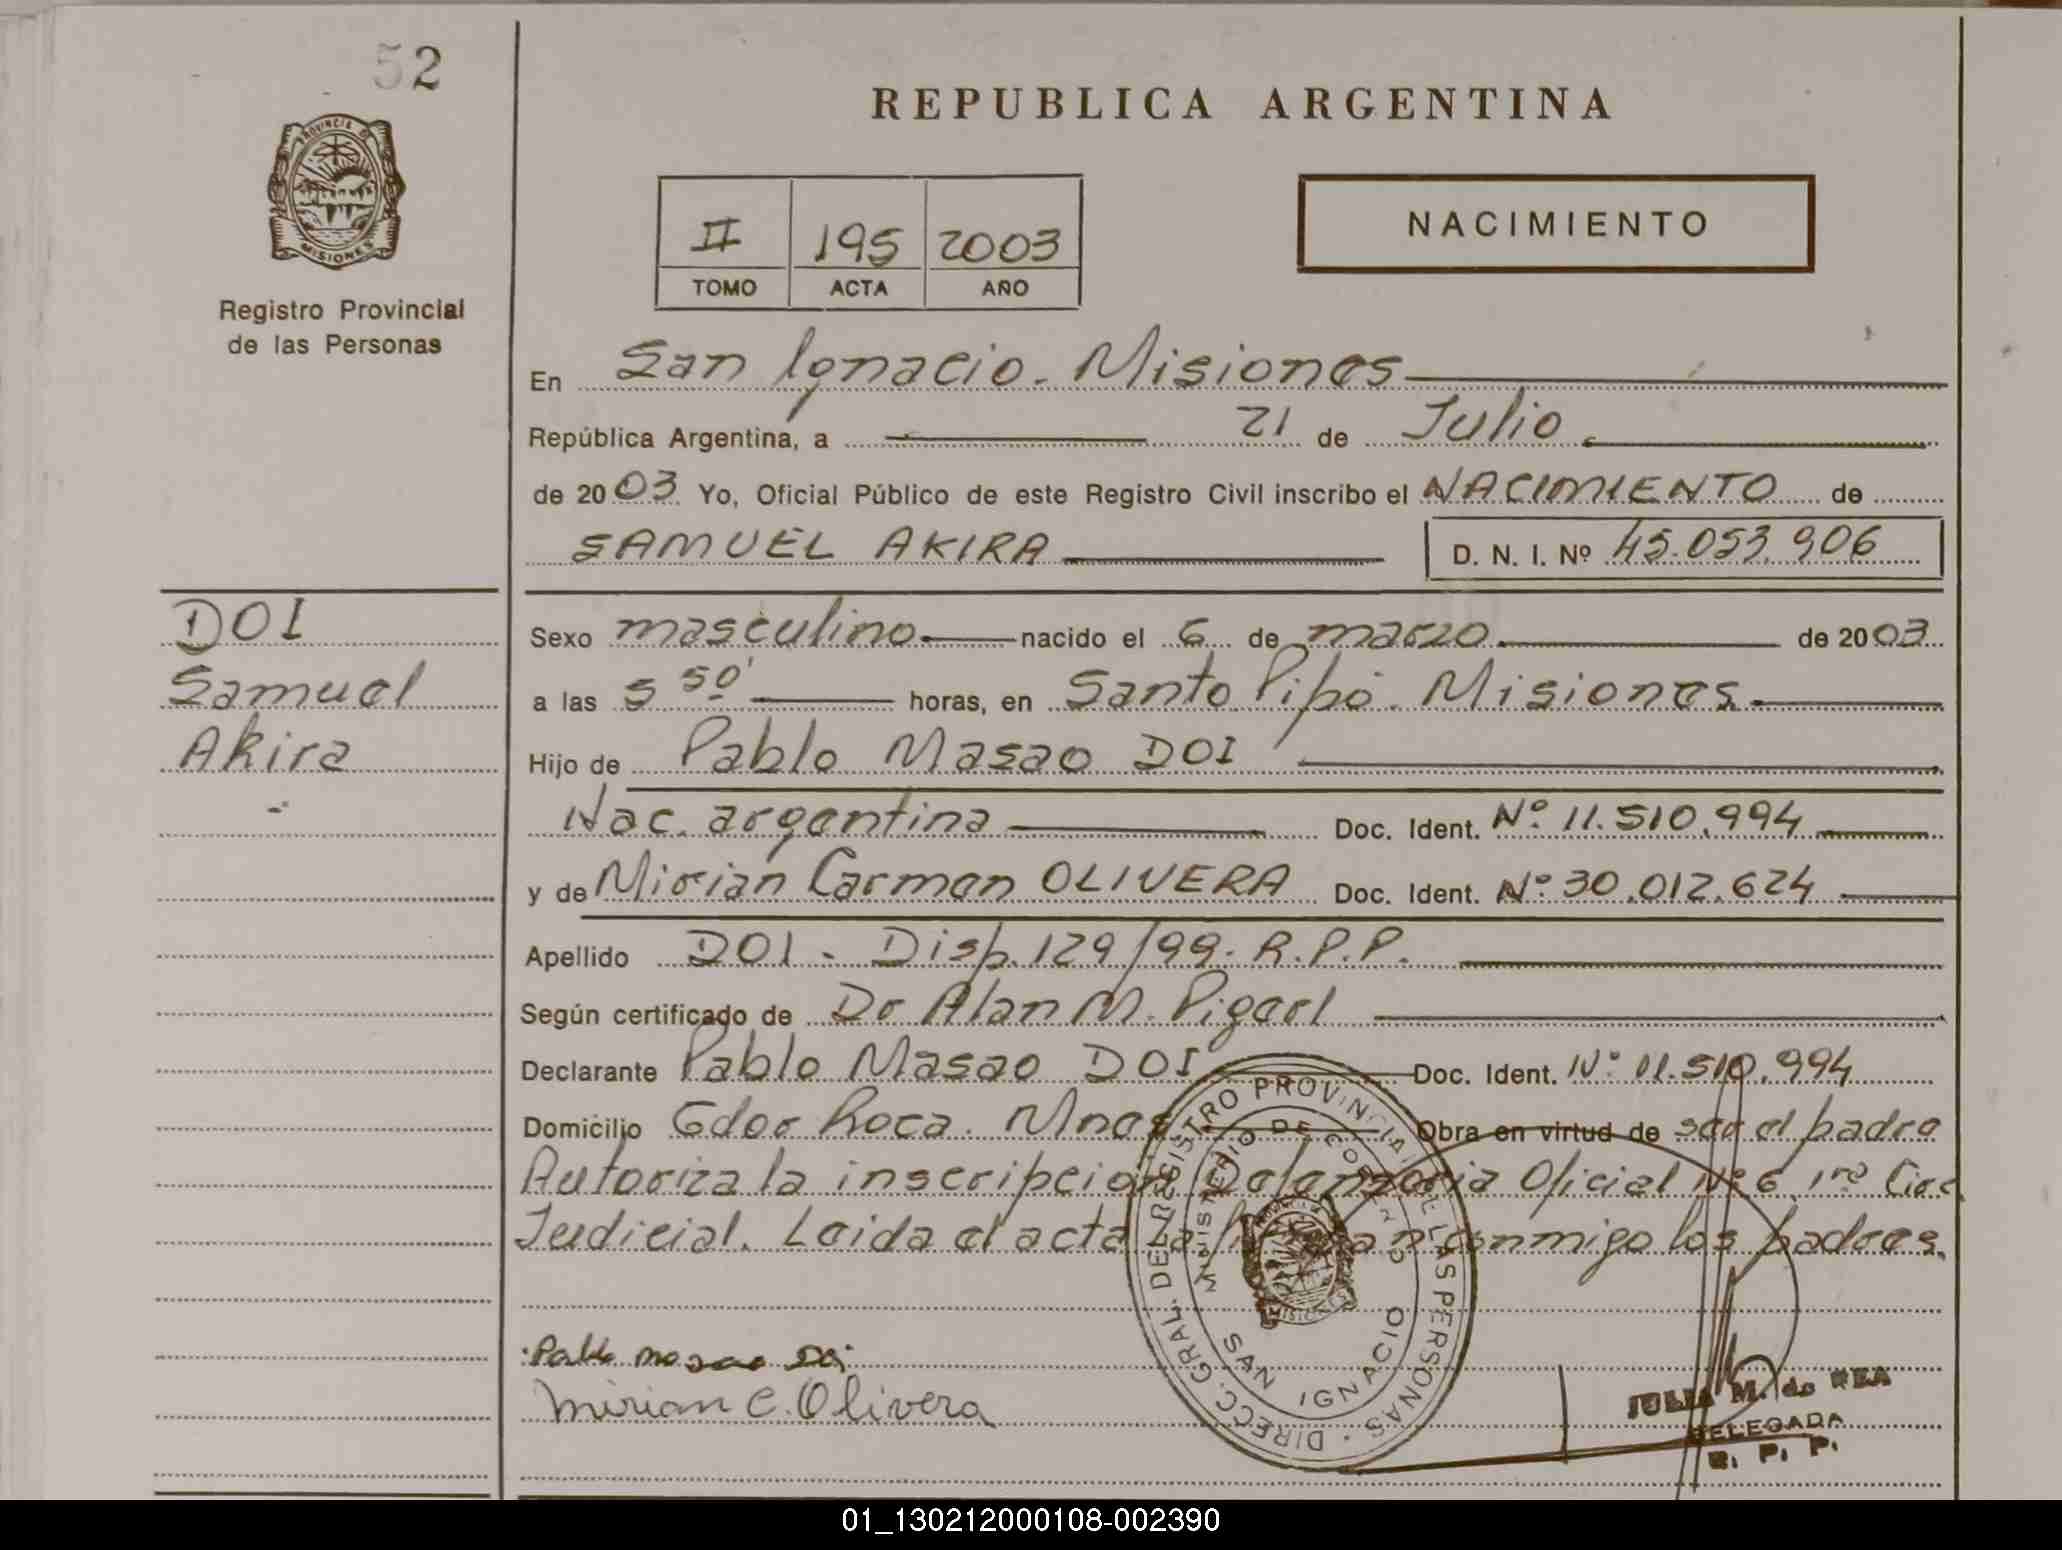 52
REPUBLICA ARGENTINA
PROVINCIA DE MISIONES
Registro Provincial
de las Personas
II 195 2003
TOMO ACTA AÑO
NACIMIENTO
En San Ignacio - Misiones
República Argentina, a 21 de Julio
de 2003 Yo, Oficial Público de este Registro Civil inscribo el NACIMIENTO de
SAMUEL AKIRA D. N. I. Nº 45.053.906
DOI
Samuel
Akira
Sexo masculino nacido el 6 de marzo de 2003
a las 5 50' horas, en Santo Pipó. Misiones
Hijo de Pablo Masao DOI
Nac. argentina Doc. Ident. Nº 11.510.994
y de Mirian Carmen OLIVERA Doc. Ident. Nº 30.012.624
Apellido DOI - Disp. 129/99. R.P.P.
Según certificado de Dr Alan M.
Declarante Pablo Masao DOI Doc. Ident. Nº 11.510.994
Domicilio Gdor Roca. Mnes Obra en virtud de ser el padre
Autoriza la inscripción Defensoria Oficial Nº 6 1ra Circ
Judicial. Leida el acta la firman conmigo los padres.
Pablo masao Doi
Mirian C. Olivera
DIRECC. GRAL. DEL REGISTRO PROVINCIAL DE LAS PERSONAS
MINISTERIO DE GOBIERNO
SAN IGNACIO
JULIA M. de REA
DELEGADA
R. P. P.
01_130212000108-002390